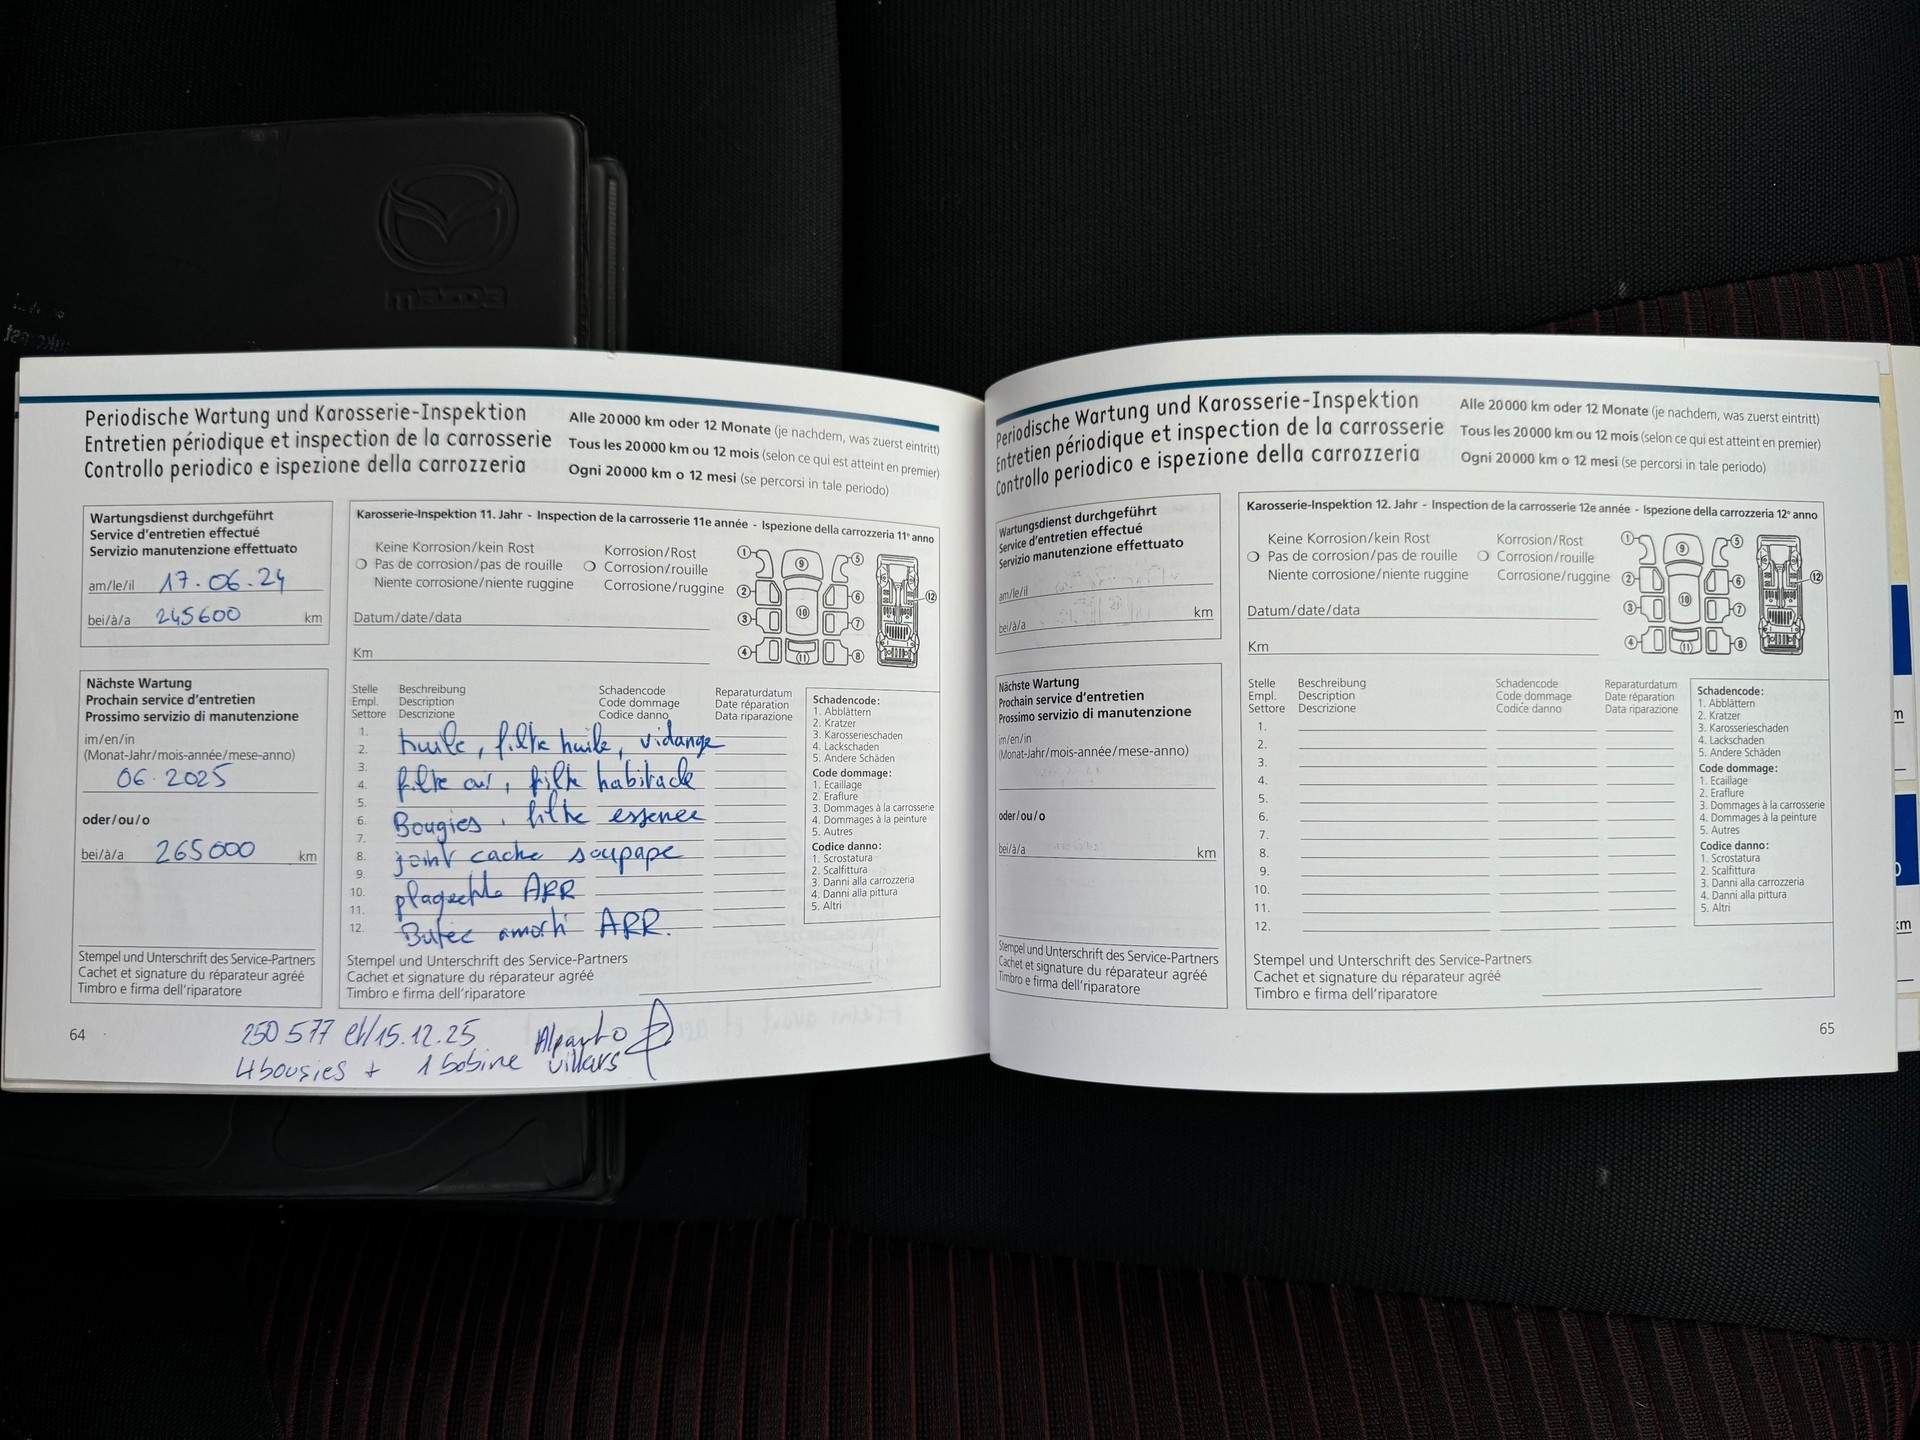 mazda
Periodische Wartung und Karosserie-Inspektion
Entretien périodique et inspection de la carrosserie
Controllo periodico e ispezione della carrozzeria
Alle 20 000 km oder 12 Monate (je nachdem, was zuerst eintritt)
Tous les 20 000 km ou 12 mois (selon ce qui est atteint en premier)
Ogni 20 000 km o 12 mesi (se percorsi in tale periodo)
Wartungsdienst durchgeführt
Service d'entretien effectué
Servizio manutenzione effettuato
am/le/il 17.06.24
bei/à/a 245600 km
Nächste Wartung
Prochain service d'entretien
Prossimo servizio di manutenzione
im/en/in
(Monat-Jahr/mois-année/mese-anno)
06.2025
oder/ou/o
bei/à/a 265000 km
Stempel und Unterschrift des Service-Partners
Cachet et signature du réparateur agréé
Timbro e firma dell'riparatore
Karosserie-Inspektion 11. Jahr - Inspection de la carrosserie 11e année - Ispezione della carrozzeria 11° anno
Keine Korrosion/kein Rost
Pas de corrosion/pas de rouille
Niente corrosione/niente ruggine
Korrosion/Rost
Corrosion/rouille
Corrosione/ruggine
Datum/date/data
Km
1 2 3 4 5 6 7 8 9 10 11 12
Stelle Beschreibung Schadencode Reparaturdatum
Empl. Description Code dommage Date réparation
Settore Descrizione Codice danno Data riparazione
1.
2. huile, filtre huile, vidange
3.
4. filtre air, filtre habitacle
5.
6. Bougies, filtre essence
7.
8. joint cache soupape
9.
10. plaquette ARR
11.
12. Butée amorti ARR.
Schadencode:
1. Abblättern
2. Kratzer
3. Karosserieschaden
4. Lackschaden
5. Andere Schäden
Code dommage:
1. Ecaillage
2. Eraflure
3. Dommages à la carrosserie
4. Dommages à la peinture
5. Autres
Codice danno:
1. Scrostatura
2. Scalfittura
3. Danni alla carrozzeria
4. Danni alla pittura
5. Altri
Stempel und Unterschrift des Service-Partners
Cachet et signature du réparateur agréé
Timbro e firma dell'riparatore
64
250 577 15.12.25
4 bougies + 1 bobine
Villars
Periodische Wartung und Karosserie-Inspektion
Entretien périodique et inspection de la carrosserie
Controllo periodico e ispezione della carrozzeria
Alle 20 000 km oder 12 Monate (je nachdem, was zuerst eintritt)
Tous les 20 000 km ou 12 mois (selon ce qui est atteint en premier)
Ogni 20 000 km o 12 mesi (se percorsi in tale periodo)
Wartungsdienst durchgeführt
Service d'entretien effectué
Servizio manutenzione effettuato
am/le/il
bei/à/a km
Nächste Wartung
Prochain service d'entretien
Prossimo servizio di manutenzione
im/en/in
(Monat-Jahr/mois-année/mese-anno)
oder/ou/o
bei/à/a km
Stempel und Unterschrift des Service-Partners
Cachet et signature du réparateur agréé
Timbro e firma dell'riparatore
Karosserie-Inspektion 12. Jahr - Inspection de la carrosserie 12e année - Ispezione della carrozzeria 12° anno
Keine Korrosion/kein Rost
Pas de corrosion/pas de rouille
Niente corrosione/niente ruggine
Korrosion/Rost
Corrosion/rouille
Corrosione/ruggine
Datum/date/data
Km
1 2 3 4 5 6 7 8 9 10 11 12
Stelle Beschreibung Schadencode Reparaturdatum
Empl. Description Code dommage Date réparation
Settore Descrizione Codice danno Data riparazione
1.
2.
3.
4.
5.
6.
7.
8.
9.
10.
11.
12.
Schadencode:
1. Abblättern
2. Kratzer
3. Karosserieschaden
4. Lackschaden
5. Andere Schäden
Code dommage:
1. Ecaillage
2. Eraflure
3. Dommages à la carrosserie
4. Dommages à la peinture
5. Autres
Codice danno:
1. Scrostatura
2. Scalfittura
3. Danni alla carrozzeria
4. Danni alla pittura
5. Altri
Stempel und Unterschrift des Service-Partners
Cachet et signature du réparateur agréé
Timbro e firma dell'riparatore
65